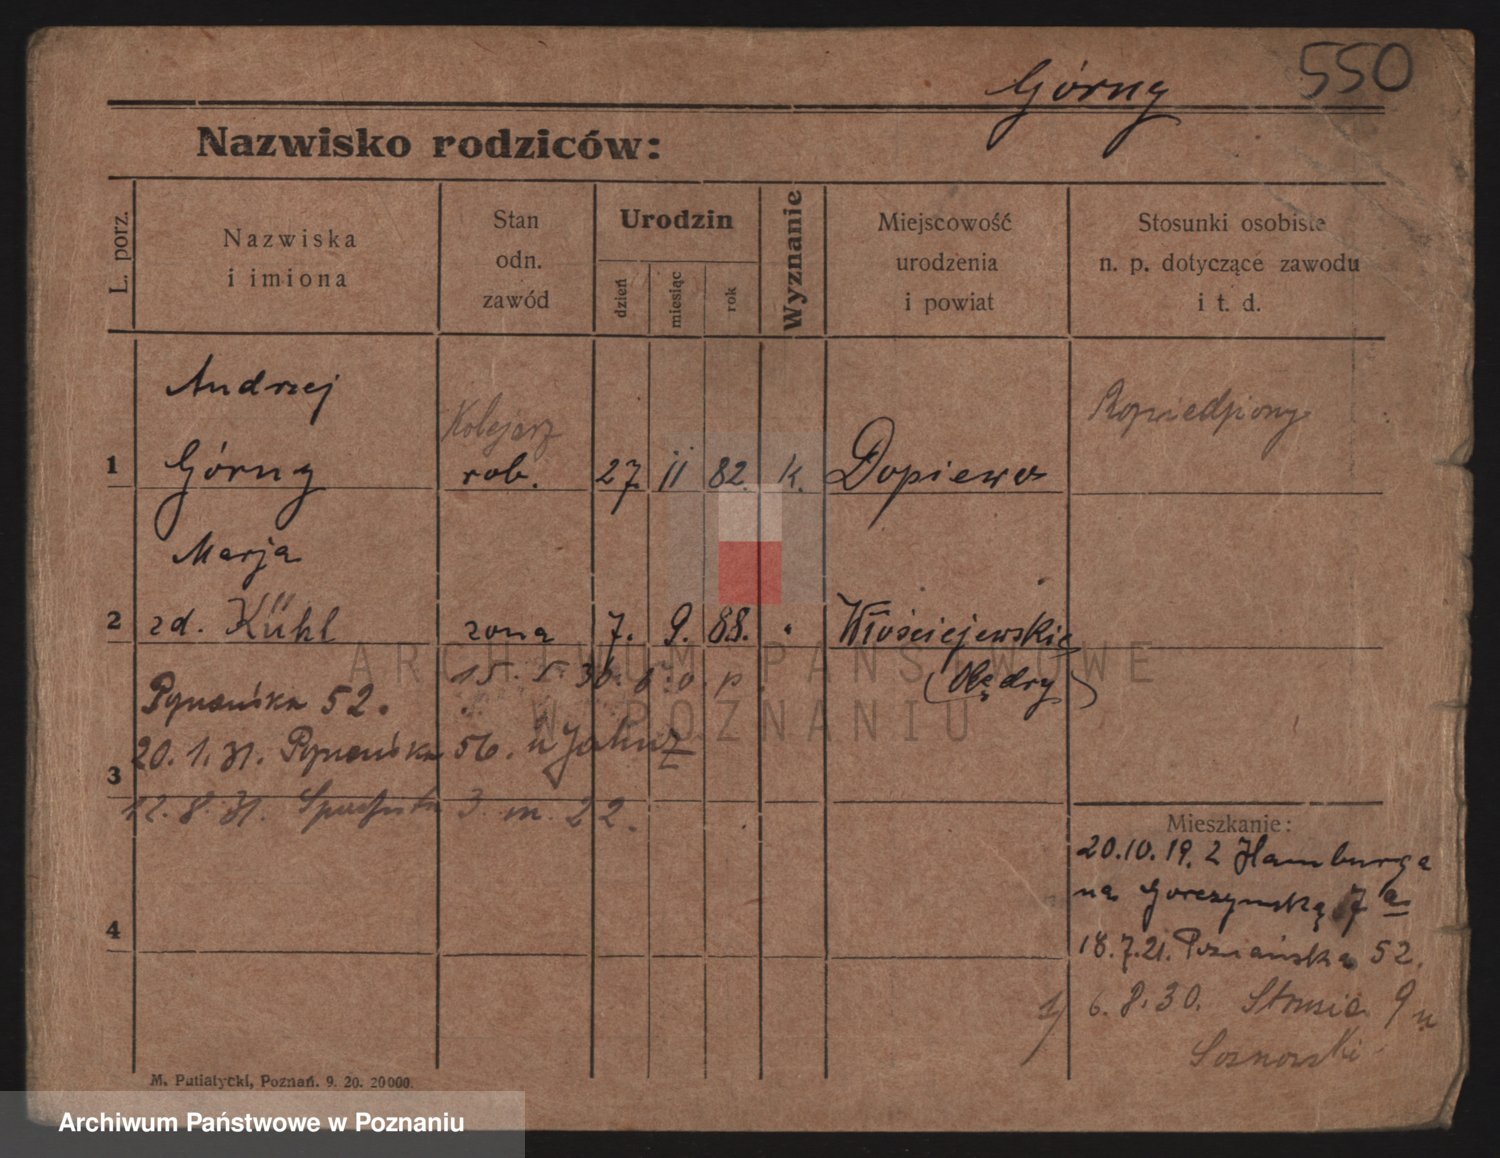 Górny
550
Nazwisko rodziców:
L. porz.
Nazwiska
i imiona
Stan
odn.
zawód
Urodzin
dzień
miesiąc
rok
Wyznanie
Miejscowość
urodzenia
i powiat
Stosunki osobiste
n. p. dotyczące zawodu
i t. d.
1
Andrzej
Górny
Kolejarz
rob.
27. 11 82. k.
Dopiewo
2
Marja
zd. Kühl
żona
7. 9. 88. "
Włościejewskie
(Olędry)
15. 5. 36.
Poznańska 52.
20. 1. 31. Poznańska 56. u
3
12. 8. 31. 3 m. 22.
4
Mieszkanie:
20.10.19. z Hamburga
na Gorczyńską 7a
18.7.21. Poznańska 52.
6. 8. 30. Strusia 9 u
Sosnowski
M. Putiatycki, Poznań. 9. 20. 20000.
ARCHIWUM PAŃSTWOWE
W POZNANIU
Archiwum Państwowe w Poznaniu